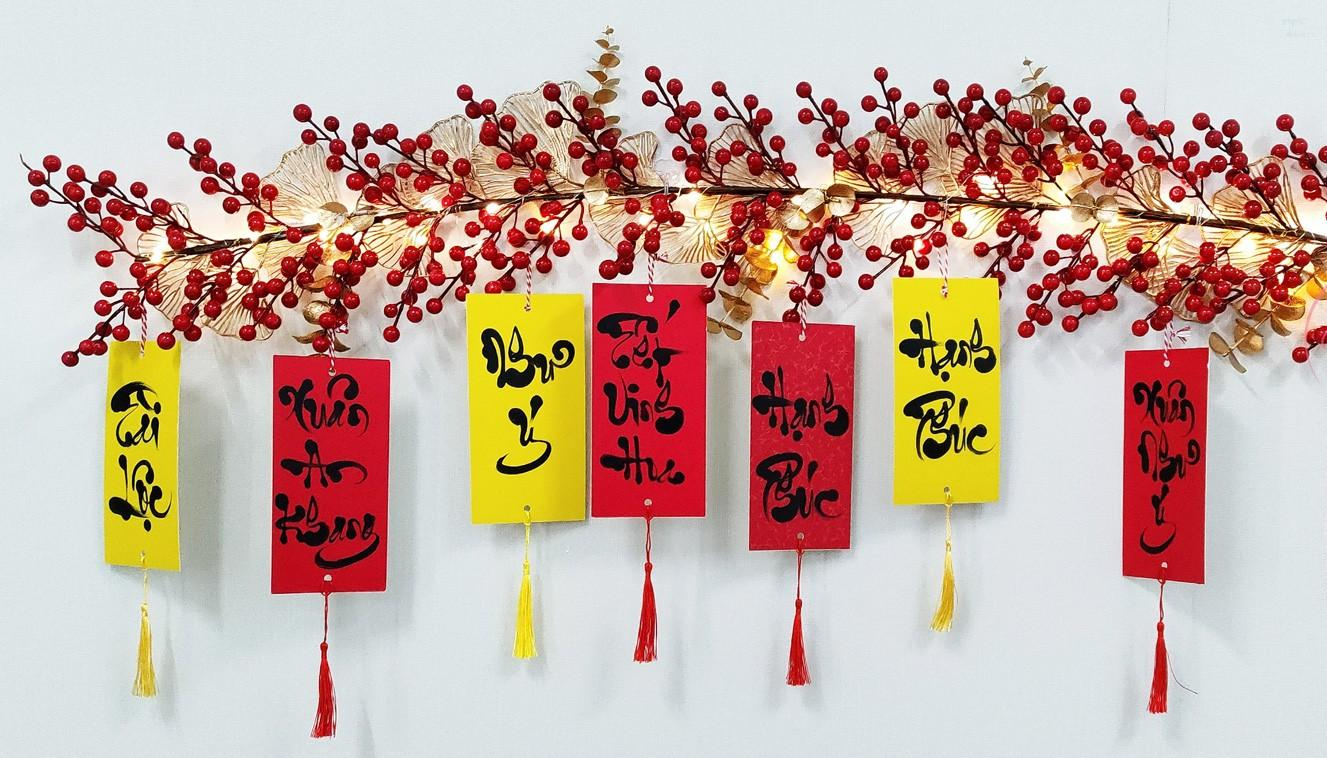 Tài
Lộc
Xuân
An
Khang
Như
Ý
Tết
Vinh
Hoa
Hạnh
Phúc
Hạnh
Phúc
Xuân
Như
Ý